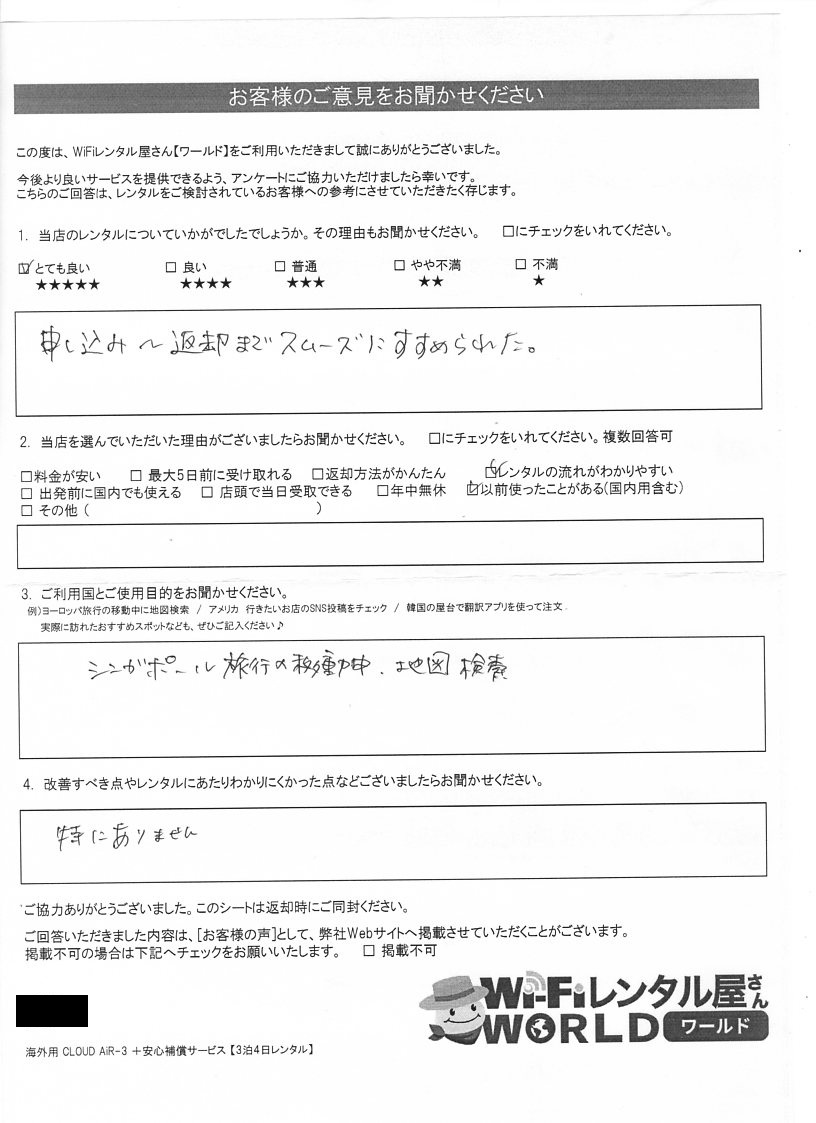 お客様のご意見をお聞かせください
この度は、WiFiレンタル屋さん【ワールド】をご利用いただきまして誠にありがとうございました。
今後より良いサービスを提供できるよう、アンケートにご協力いただけましたら幸いです。
こちらのご回答は、レンタルをご検討されているお客様への参考にさせていただきたく存じます。
1. 当店のレンタルについていかがでしたでしょうか。その理由もお聞かせください。 □にチェックをいれてください。
☑ とても良い □ 良い □ 普通 □ やや不満 □ 不満
★★★★★ ★★★★ ★★★ ★★ ★
申し込み〜返却までスムーズにすすめられた。
2. 当店を選んでいただいた理由がございましたらお聞かせください。 □にチェックをいれてください。複数回答可
□料金が安い □ 最大5日前に受け取れる □返却方法がかんたん ☑レンタルの流れがわかりやすい
□ 出発前に国内でも使える □ 店頭で当日受取できる □年中無休 ☑以前使ったことがある(国内用含む)
□ その他 ( )
3. ご利用国とご使用目的をお聞かせください。
例)ヨーロッパ旅行の移動中に地図検索 / アメリカ 行きたいお店のSNS投稿をチェック / 韓国の屋台で翻訳アプリを使って注文
実際に訪れたおすすめスポットなども、ぜひご記入ください♪
シンガポール旅行の移動中、地図検索
4. 改善すべき点やレンタルにあたりわかりにくかった点などございましたらお聞かせください。
特にありません
ご協力ありがとうございました。このシートは返却時にご同封ください。
ご回答いただきました内容は、[お客様の声]として、弊社Webサイトへ掲載させていただくことがございます。
掲載不可の場合は下記へチェックをお願いいたします。 □ 掲載不可
Wi-Fiレンタル屋さん
WORLD ワールド
海外用 CLOUD AiR-3 +安心補償サービス【3泊4日レンタル】